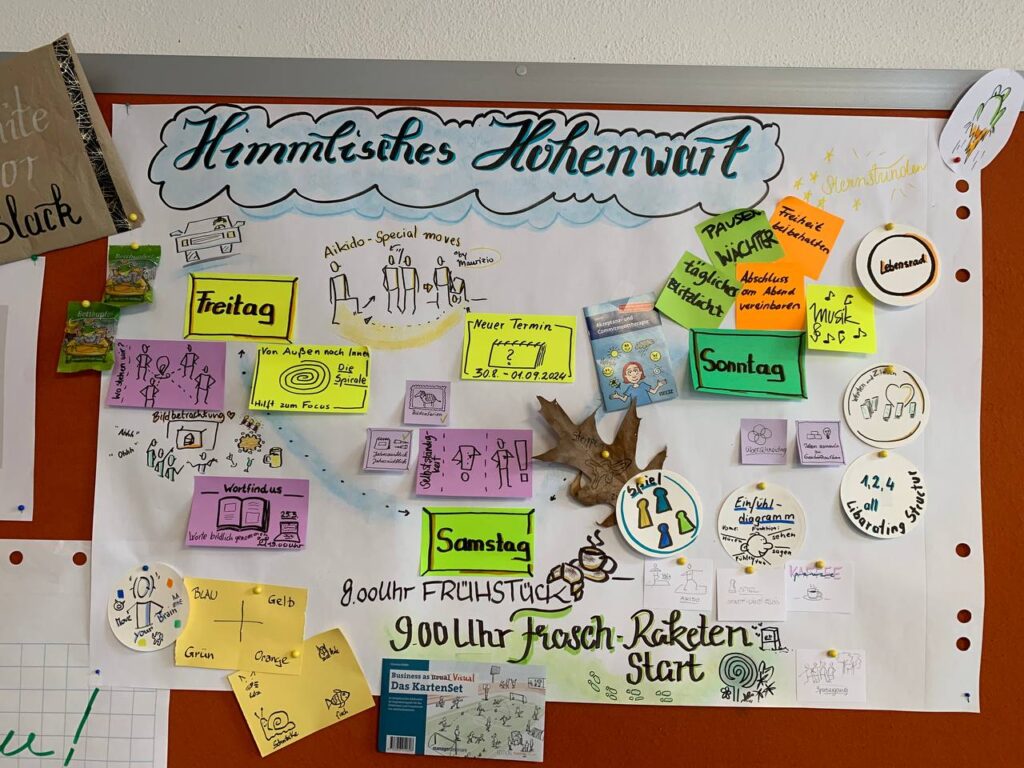 Black
Himmlisches Hohenwart
Sternstunden
Aikido-Special moves
by Maurizio
Freitag
Neuer Termin
?
30.8. - 01.09.2024
Akzeptanz- und
Commitmenttherapie
PAUSEN
WÄCHTER
Freiheit
beibehalten
täglicher
Blitzlicht
Abschluss
am Abend
vereinbaren
Musik
Lebensrad
Sonntag
Wo stehen wir?
Von Außen nach Innen
Die
Spirale
Hilft zum Focus
Bildbetrachtung
"Ahhh"
"Ohhh"
Selbstständig-
Wortfindus
Worte bildlich genommen
19.00 Uhr
Samstag
Spiel
Einfühl-
diagramm
Hören
sehen
Fühlen
sagen
1, 2, 4
all
Liberating Structur
KAFFEE
9.00 Uhr FRÜHSTÜCK
9.00 Uhr Frosch-Raketen
Start
Spaziergang
Move
your
Brain
BLAU
Gelb
Grün
Orange
Fisch
Schnecke
Business as usual Visual
Das KartenSet